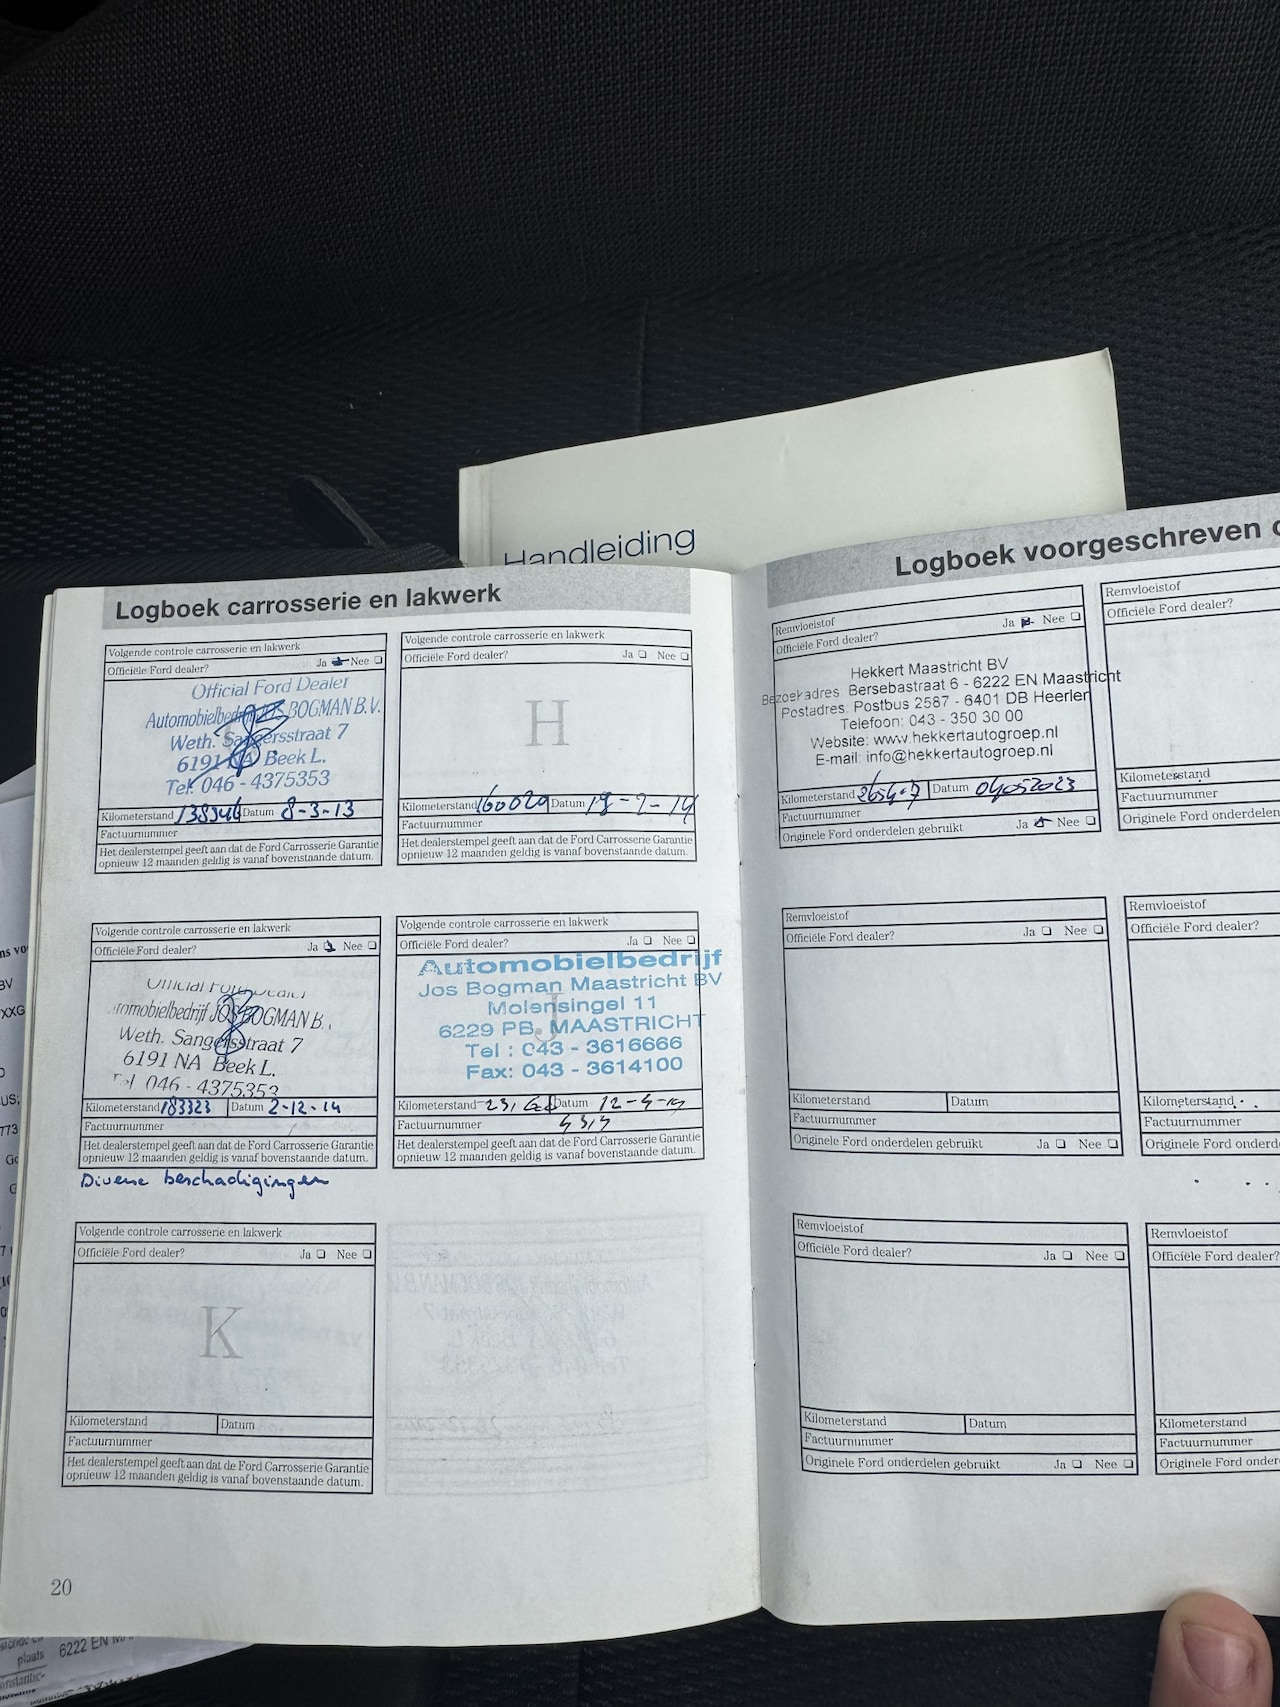 Handleiding
Logboek carrosserie en lakwerk
Volgende controle carrosserie en lakwerk
Officiële Ford dealer? Ja Nee
Official Ford Dealer
Automobielbedrijf JOS BOGMAN B.V.
Weth. Sangersstraat 7
6191 NA Beek L.
Tel. 046 - 4375353
Kilometerstand 138346 Datum 8-3-13
Factuurnummer
Het dealerstempel geeft aan dat de Ford Carrosserie Garantie
opnieuw 12 maanden geldig is vanaf bovenstaande datum.
Volgende controle carrosserie en lakwerk
Officiële Ford dealer? Ja Nee
H
Kilometerstand 160020 Datum
Factuurnummer
Het dealerstempel geeft aan dat de Ford Carrosserie Garantie
opnieuw 12 maanden geldig is vanaf bovenstaande datum.
Volgende controle carrosserie en lakwerk
Officiële Ford dealer? Ja Nee
Official Ford Dealer
tomobielbedrijf JOS BOGMAN B.
Weth. Sangersstraat 7
6191 NA Beek L.
Tel 046 - 4375353
Kilometerstand 183323 Datum 2-12-14
Factuurnummer
Het dealerstempel geeft aan dat de Ford Carrosserie Garantie
opnieuw 12 maanden geldig is vanaf bovenstaande datum.
Diverse beschadigingen
Volgende controle carrosserie en lakwerk
Officiële Ford dealer? Ja Nee
J
Automobielbedrijf
Jos Bogman Maastricht BV
Molensingel 11
6229 PB MAASTRICHT
Tel : 043 - 3616666
Fax: 043 - 3614100
Kilometerstand Datum
Factuurnummer
Het dealerstempel geeft aan dat de Ford Carrosserie Garantie
opnieuw 12 maanden geldig is vanaf bovenstaande datum.
Volgende controle carrosserie en lakwerk
Officiële Ford dealer? Ja Nee
K
Kilometerstand Datum
Factuurnummer
Het dealerstempel geeft aan dat de Ford Carrosserie Garantie
opnieuw 12 maanden geldig is vanaf bovenstaande datum.
20
Logboek voorgeschreven
Remvloeistof
Officiële Ford dealer? Ja Nee
Hekkert Maastricht BV
Bezoekadres: Bersebastraat 6 - 6222 EN Maastricht
Postadres: Postbus 2587 - 6401 DB Heerlen
Telefoon: 043 - 350 30 00
Website: www.hekkertautogroep.nl
E-mail: info@hekkertautogroep.nl
Kilometerstand Datum 04/05/2023
Factuurnummer
Originele Ford onderdelen gebruikt Ja Nee
Remvloeistof
Officiële Ford dealer?
Kilometerstand
Factuurnummer
Originele Ford onderdelen
Remvloeistof
Officiële Ford dealer? Ja Nee
Kilometerstand Datum
Factuurnummer
Originele Ford onderdelen gebruikt Ja Nee
Remvloeistof
Officiële Ford dealer?
Kilometerstand
Factuurnummer
Originele Ford
Remvloeistof
Officiële Ford dealer? Ja Nee
Kilometerstand Datum
Factuurnummer
Originele Ford onderdelen gebruikt Ja Nee
Remvloeistof
Officiële Ford dealer?
Kilometerstand
Factuurnummer
Originele Ford
plaats 6222 EN